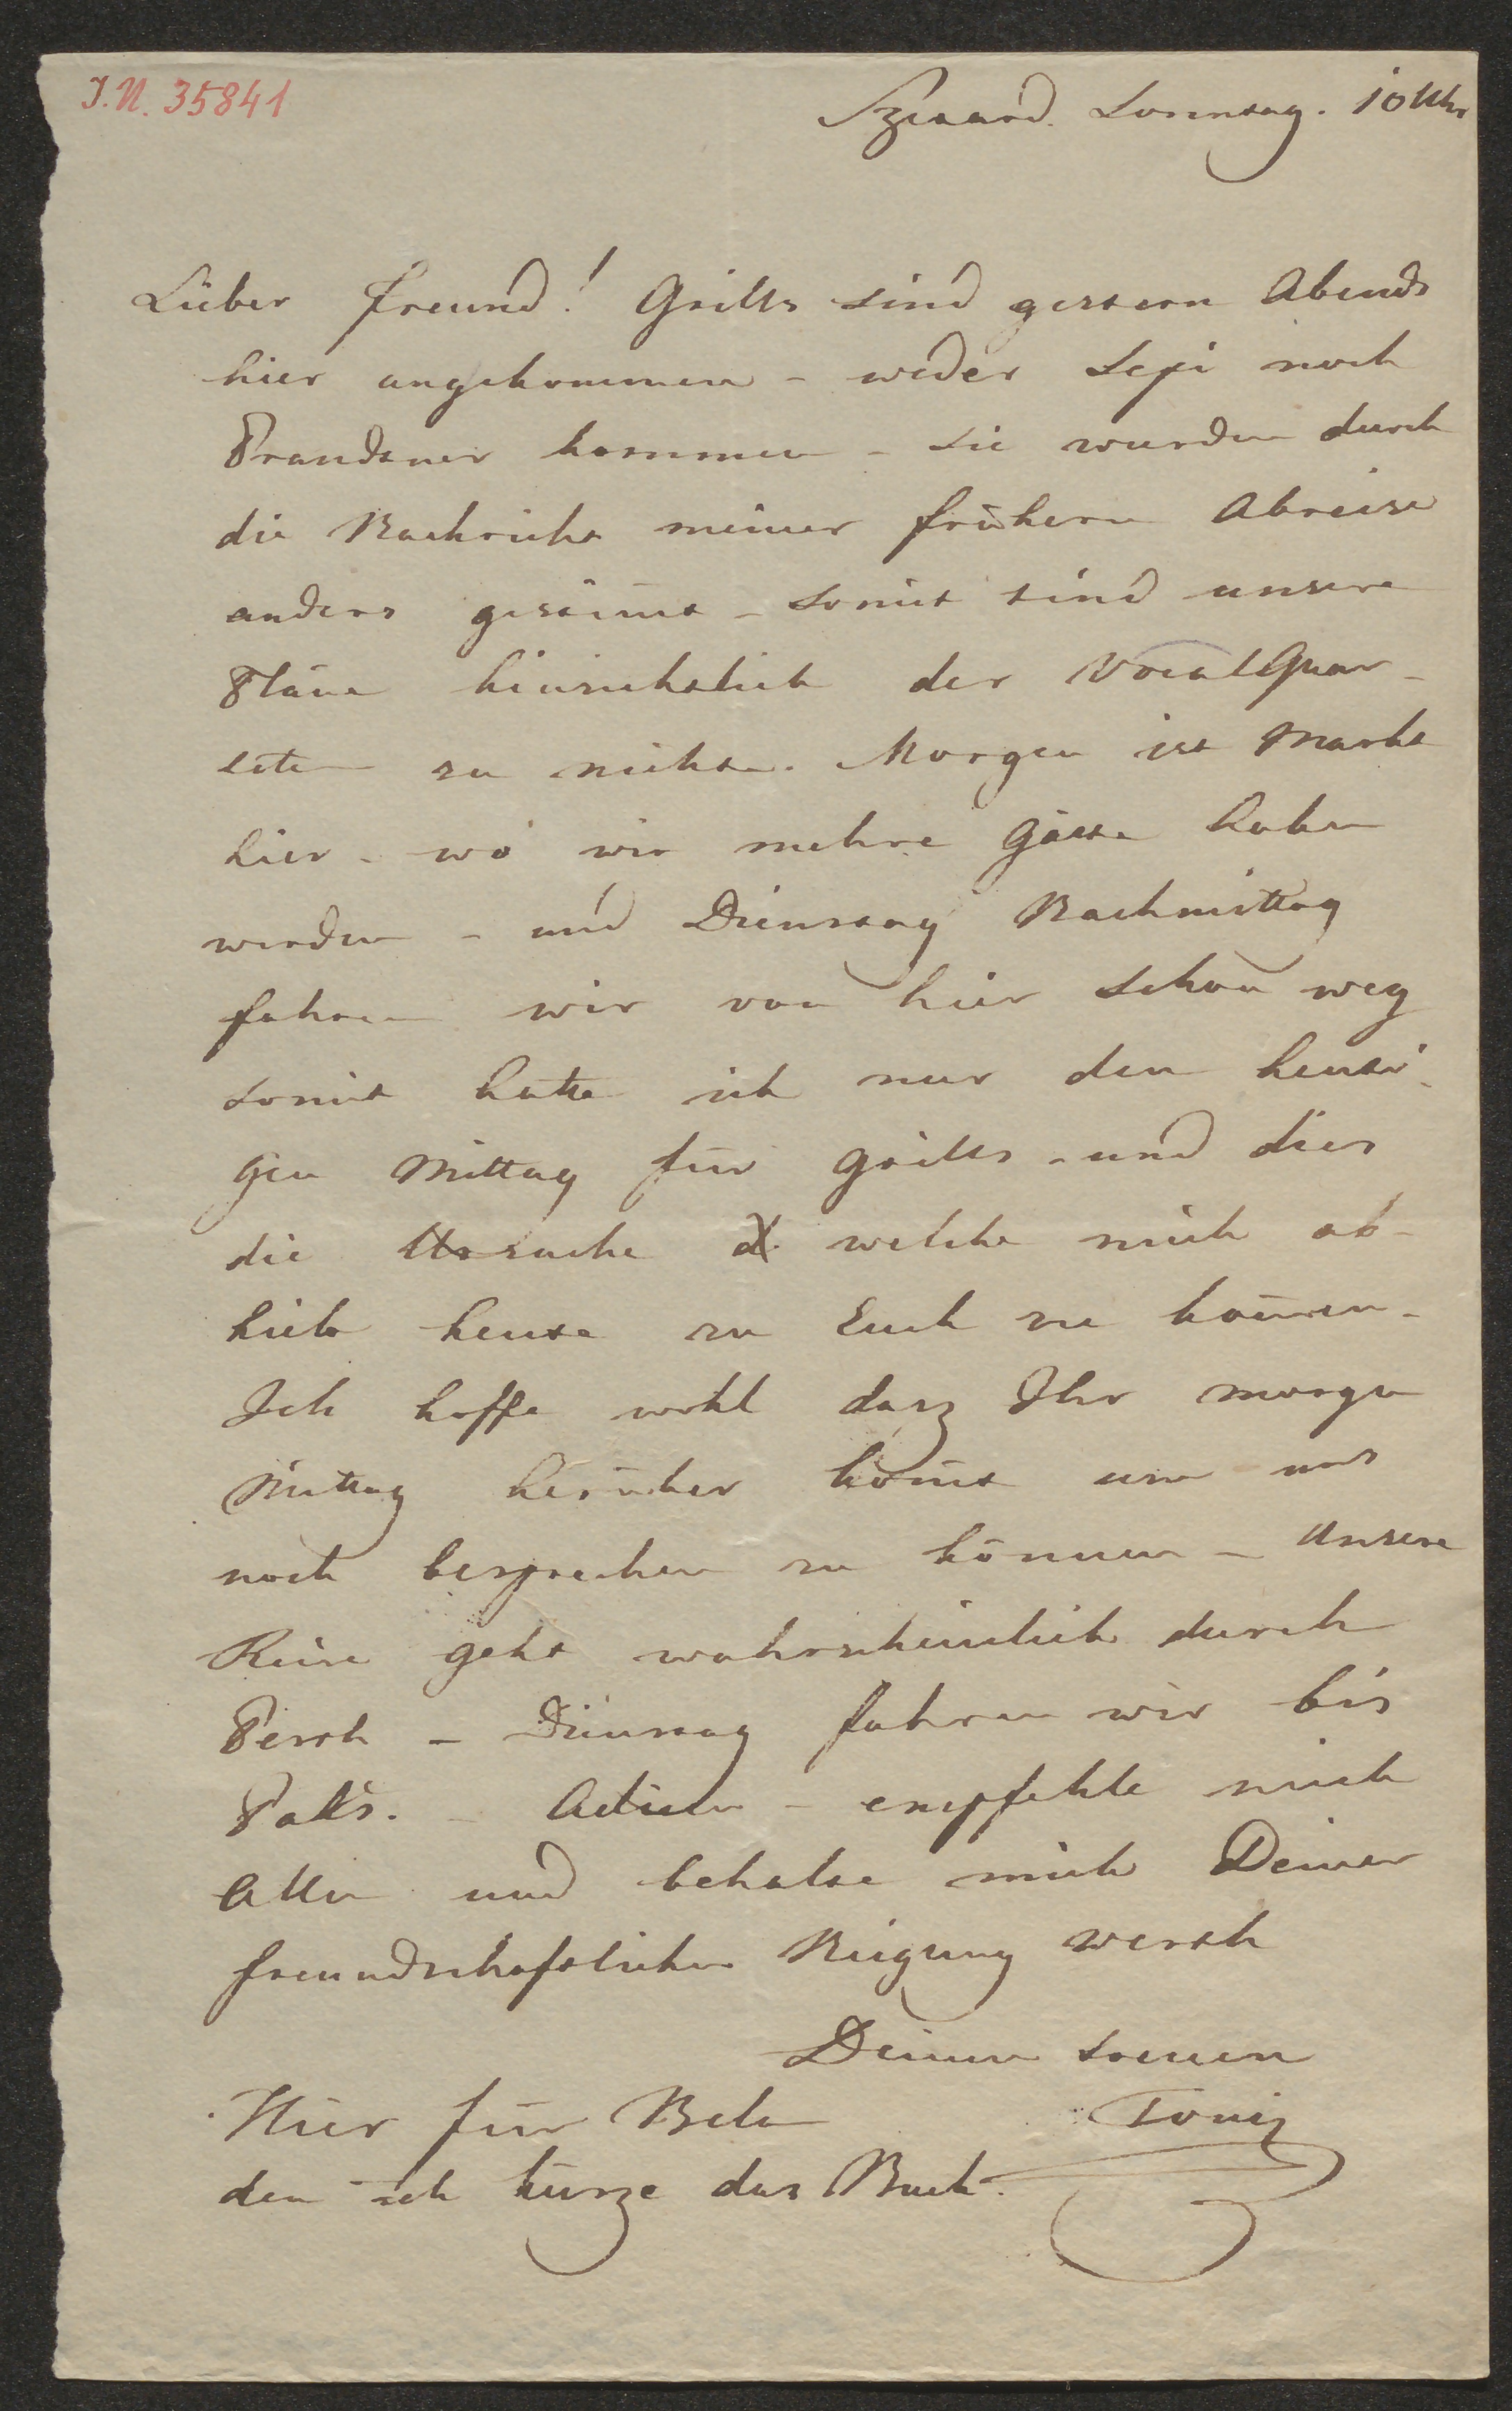 I.N. 35841
Szexard. Sonntag. 10 Uhr
Lieber Freund! Grills sind gestern Abends
hier angekommen – weder Sepi noch
Prandtner kommen – sie wurden durch
die Nachricht meiner frühern Abreise
anders gestimt – somit sind unsere
Pläne hinsichtlich der VocalQuar-
teten zu nichte. Morgen ist Markt
hier – wo wir mehre Gäste haben
werden – und Dienstag Nachmittag
fahren wir von hier schon weg
somit hatte ich nur den heuti-
gen Mittag für Grills – und dies
die Ursache welche mich ab-
hielt heute zu Euch zu kom̅en –
Ich hoffe wohl dasz Ihr morgen
Mittag herüber kom̅t um uns
noch besprechen zu können – Unsere
Reise geht wahrscheinlich durch
Pesth – Dienstag fahren wir bis
Paks. – Adieu – empfehle mich
Allen und behalte mich Deiner
freundschaftlichen Neigung werth
Deinen treuen
Hier für Bela Toni
den ich küsze das Buch.